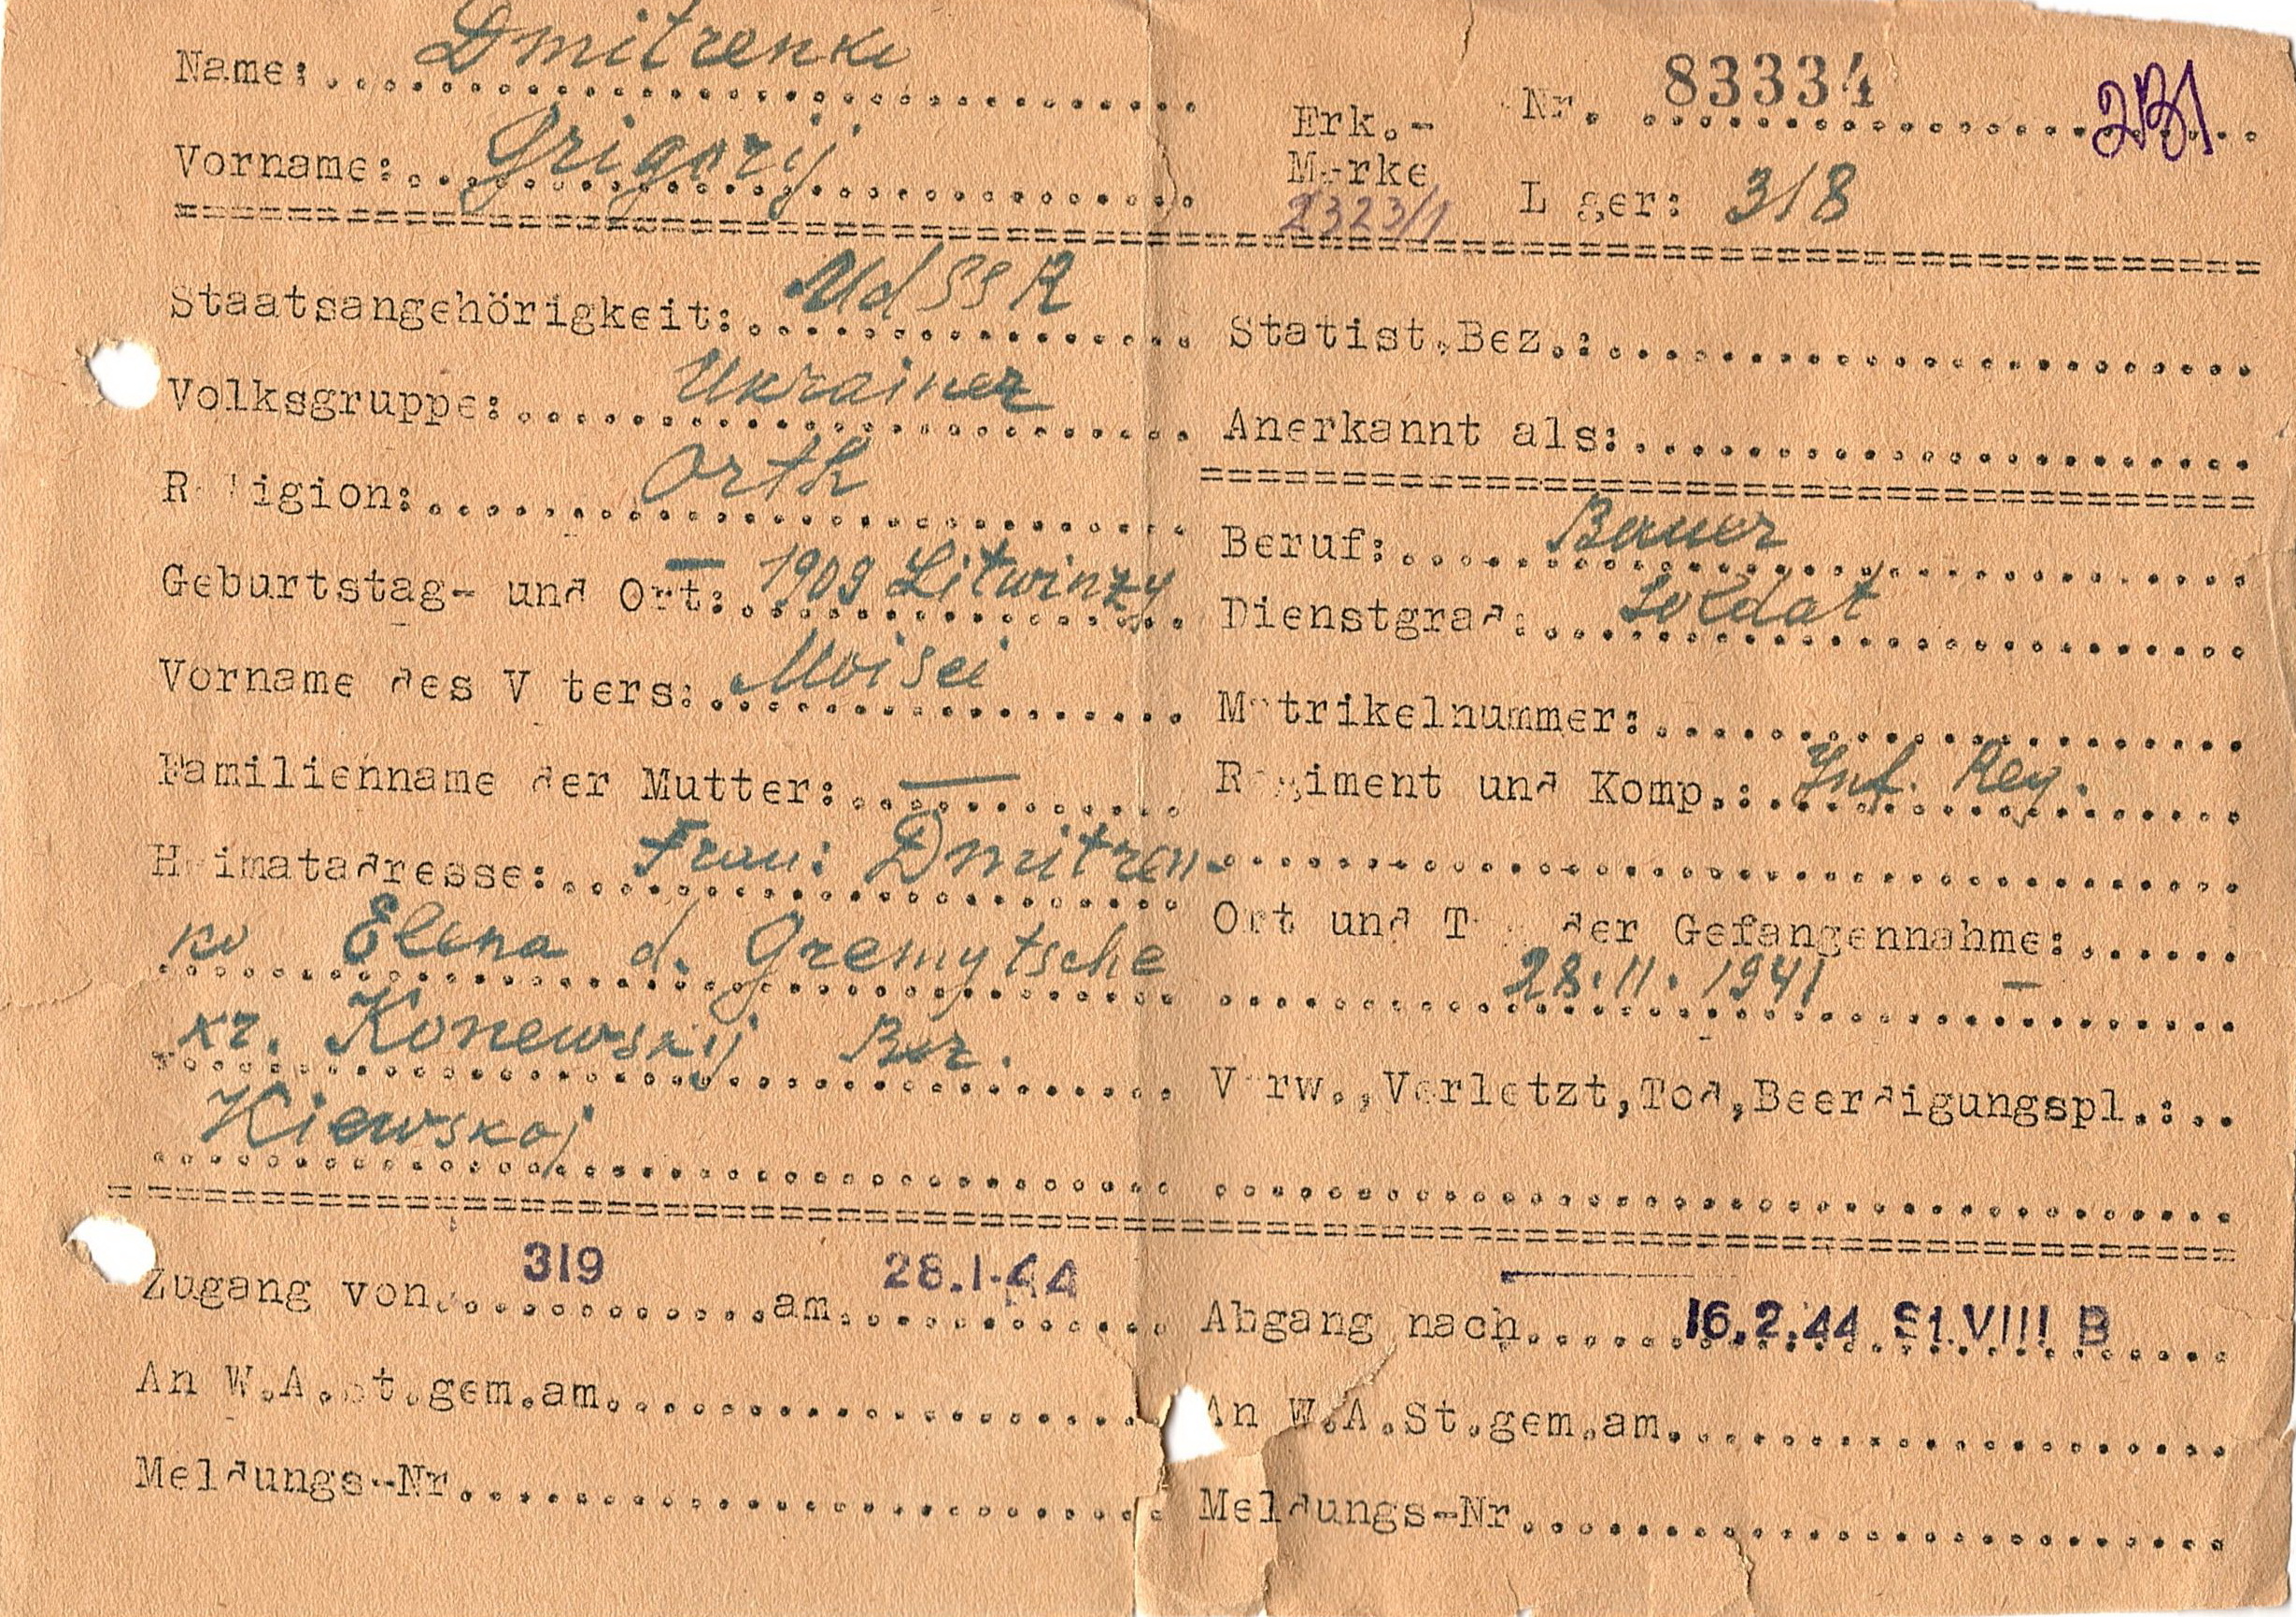 Name: Dmitrenko
Vorname: Grigorij
Erk.-
Marke
2323/1
Nr. 83334
Lager: 318
Staatsangehörigkeit: UdSSR
Volksgruppe: Ukrainer
Religion: Orth
Geburtstag- und Ort: — 1909 Litwinzy
Vorname des Vaters: Moisei
Familienname der Mutter: —
Heimatadresse: Frau: Dmitren-
ko Elena d. Gremytsche
kr. Konewskij Bez.
Kiewskoj
Statist.Bez.:
Anerkannt als:
Beruf: Bauer
Dienstgrad: Soldat
Matrikelnummer:
Regiment und Komp.: Inf. Reg.
Ort und Tag der Gefangennahme:
28.11.1941 —
Verw.,Verletzt,Tod,Beerdigungspl.:
Zugang von 319 am 28.1.44
An W.A.St.gem.am
Meldungs-Nr
Abgang nach 16.2.44 St.VIII B
An W.A.St.gem.am
Meldungs-Nr